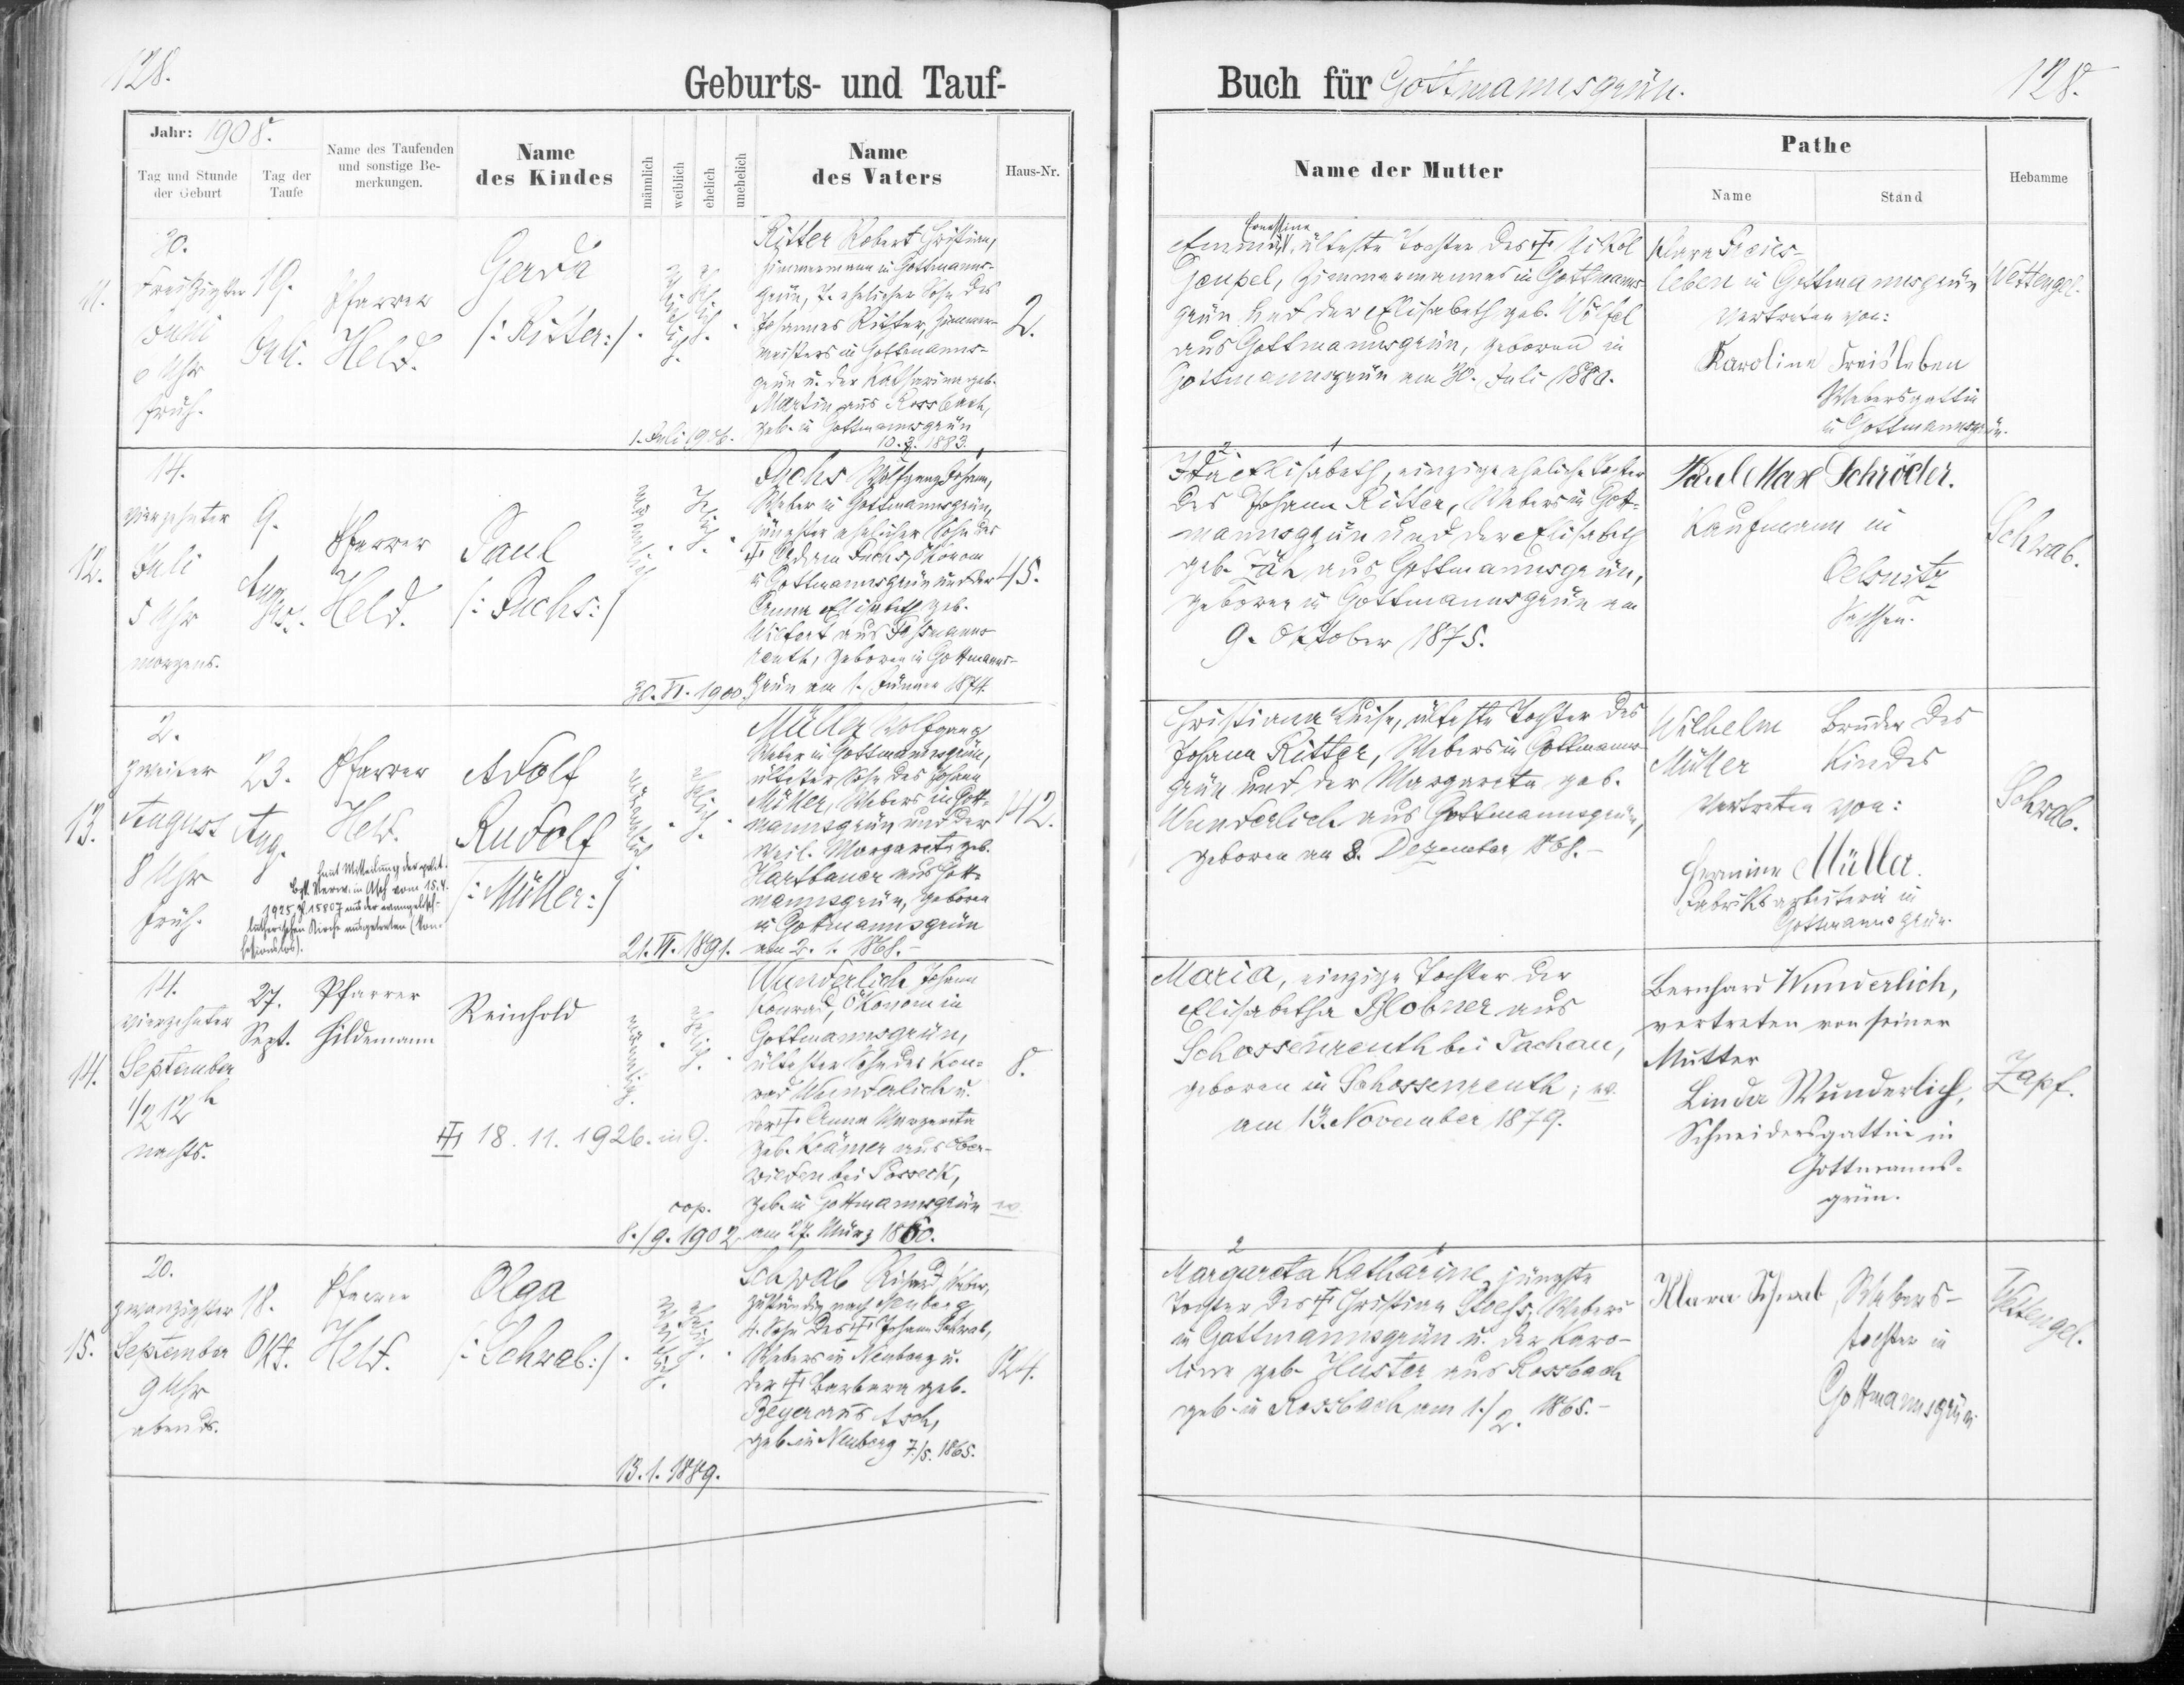 128.
Geburts- und Tauf-
Jahr: 1908.
Tag und Stunde
der Geburt
Tag der
Taufe
Name des Taufenden
und sonstige Be-
merkungen.
Name
des Kindes
männlich
weiblich
ehelich
unehelich
Name
des Vaters
Haus-Nr.
11.
30.
Juni
Uhr
früh.
19.
Juli.
Pfarrer
Held.
Gerda
/: Ritter :/
weiblich.
ehelich.
Ritter Robert Christian,
Zimmermann in Gottmanns-
grün, 7. ehelicher Sohn des
Johannes Ritter, Zimmer-
meisters in Gottmanns-
grün u. der Katharina geb.
Martin aus Rossbach,
geb. in Gottmannsgrün
10. 3. 1883.
1. Juli 1906.
2.
12.
14.
vierzehnter
Juli
5 Uhr
morgens.
9.
Aug.
Pfarrer
Held.
Paul
/: Fuchs :/
männlich
ehelich.
Fuchs Wolfgang Johann,
Weber in Gottmannsgrün,
jüngster ehelicher Sohn des
Adam Fuchs, Ökonom
in Gottmannsgrün und der
Anna Elisabeth geb.
Wilfert aus
reuth, geboren in Gottmanns-
grün am 1. Jänner 1874.
30. VI. 1900
45.
13.
2.
zweiter
August
8 Uhr
früh.
23.
Aug.
Pfarrer
Held.
laut Mitteilung der polit.
Verw. in Asch vom 15. 4.
1925, Z 15807 aus der evangelisch-
lutherischen Kirche ausgetreten (kon-
fessionslos).
Adolf
Rudolf
/: Müller :/
männlich.
ehelich.
Müller Wolfgang
Weber in Gottmannsgrün,
ältester Sohn des Johann
Müller, Webers in Gott-
mannsgrün und der
weil. Margareta geb.
Hartbauer aus Gott-
mannsgrün, geboren
in Gottmannsgrün
am 2. 1. 1868.-
21. VI. 1891.
142.
14.
14.
vierzehnter
September
1/2 12 h
nachts.
27.
Sept.
Pfarrer
Hildemann
Reinhold
männlich.
ehelich.
18. 11. 1926. in G.
Wunderlich Johann
Konrad, Ökonom in
Gottmannsgrün,
ältester Sohn des Kon-
rad Wunderlich u.
der Anna Margareta
geb. Krämer aus Ober-
wieden bei Posseck,
geb. in Gottmannsgrün
am 27. März 1860.
cop.
8./9. 1902
8.
15.
20.
zwanzigster
September
9 Uhr
abends.
18.
Okt.
Pfarrer
Held.
Olga
/: Schwab :/
weiblich.
ehelich.
Schwab Richard, Weber,
zuständig nach Neuberg,
4. Sohn des Johann Schwab,
Webers in Neuberg u.
der Barbara geb.
Beyer aus Asch,
geb. in Neuberg 7./5. 1865.
13. 1. 1889.
124.
Buch für Gottmannsgrün.
128.
Name der Mutter
Pathe
Name
Stand
Hebamme
Ernestine
Emma, älteste Tochter des Nikol
Goupel, Zimmermannes in Gottmanns-
grün und der Elisabeth geb. Wölfel
aus Gottmannsgrün, geboren in
Gottmannsgrün am 30. Juli 1880.
Klara Freies-
leben in Gottmannsgrün
vertreten von:
Karoline Freisleben
Webersgattin
in Gottmannsgrün.
Wettengel.
Ida Elisabeth, einzige eheliche Tochter
des Johann Ritter, Webers in Gott-
mannsgrün und der Elisabeth
geb. Jäh aus Gottmannsgrün,
geboren in Gottmannsgrün am
9. Oktober 1875.
Paul Max Schröder.
Kaufmann in
Oelsnitz
Sachsen.
Schwab.
Christiana Luise, älteste Tochter des
Johann Ritter, Webers in Gottmanns-
grün und der Margareta geb.
Wunderlich aus Gottmannsgrün,
geboren am 8. Dezember 1868.-
Wilhelm
Müller
Bruder des
Kindes
vertreten von:
Hermine Müller.
Fabriksarbeiterin in
Gottmannsgrün.
Schwab.
Maria, einzige Tochter der
Elisabetha Blobner aus
Schossenreuth bei Tachau,
geboren in Schossenreuth;
am 13. November 1879.
Bernhard Wunderlich,
vertreten von seiner
Mutter
Linda Wunderlich,
Schneidersgattin in
Gottmanns-
grün.
Zapf.
Margareta Katharine, jüngste
Tochter des Christian Stoess, Webers
in Gottmannsgrün u. der Karo-
line geb. Huster aus Rossbach
geb. in Rossbach am 1./2. 1865.-
Klara Schwab, Webers-
tochter in
Gottmannsgrün
Wettengel.